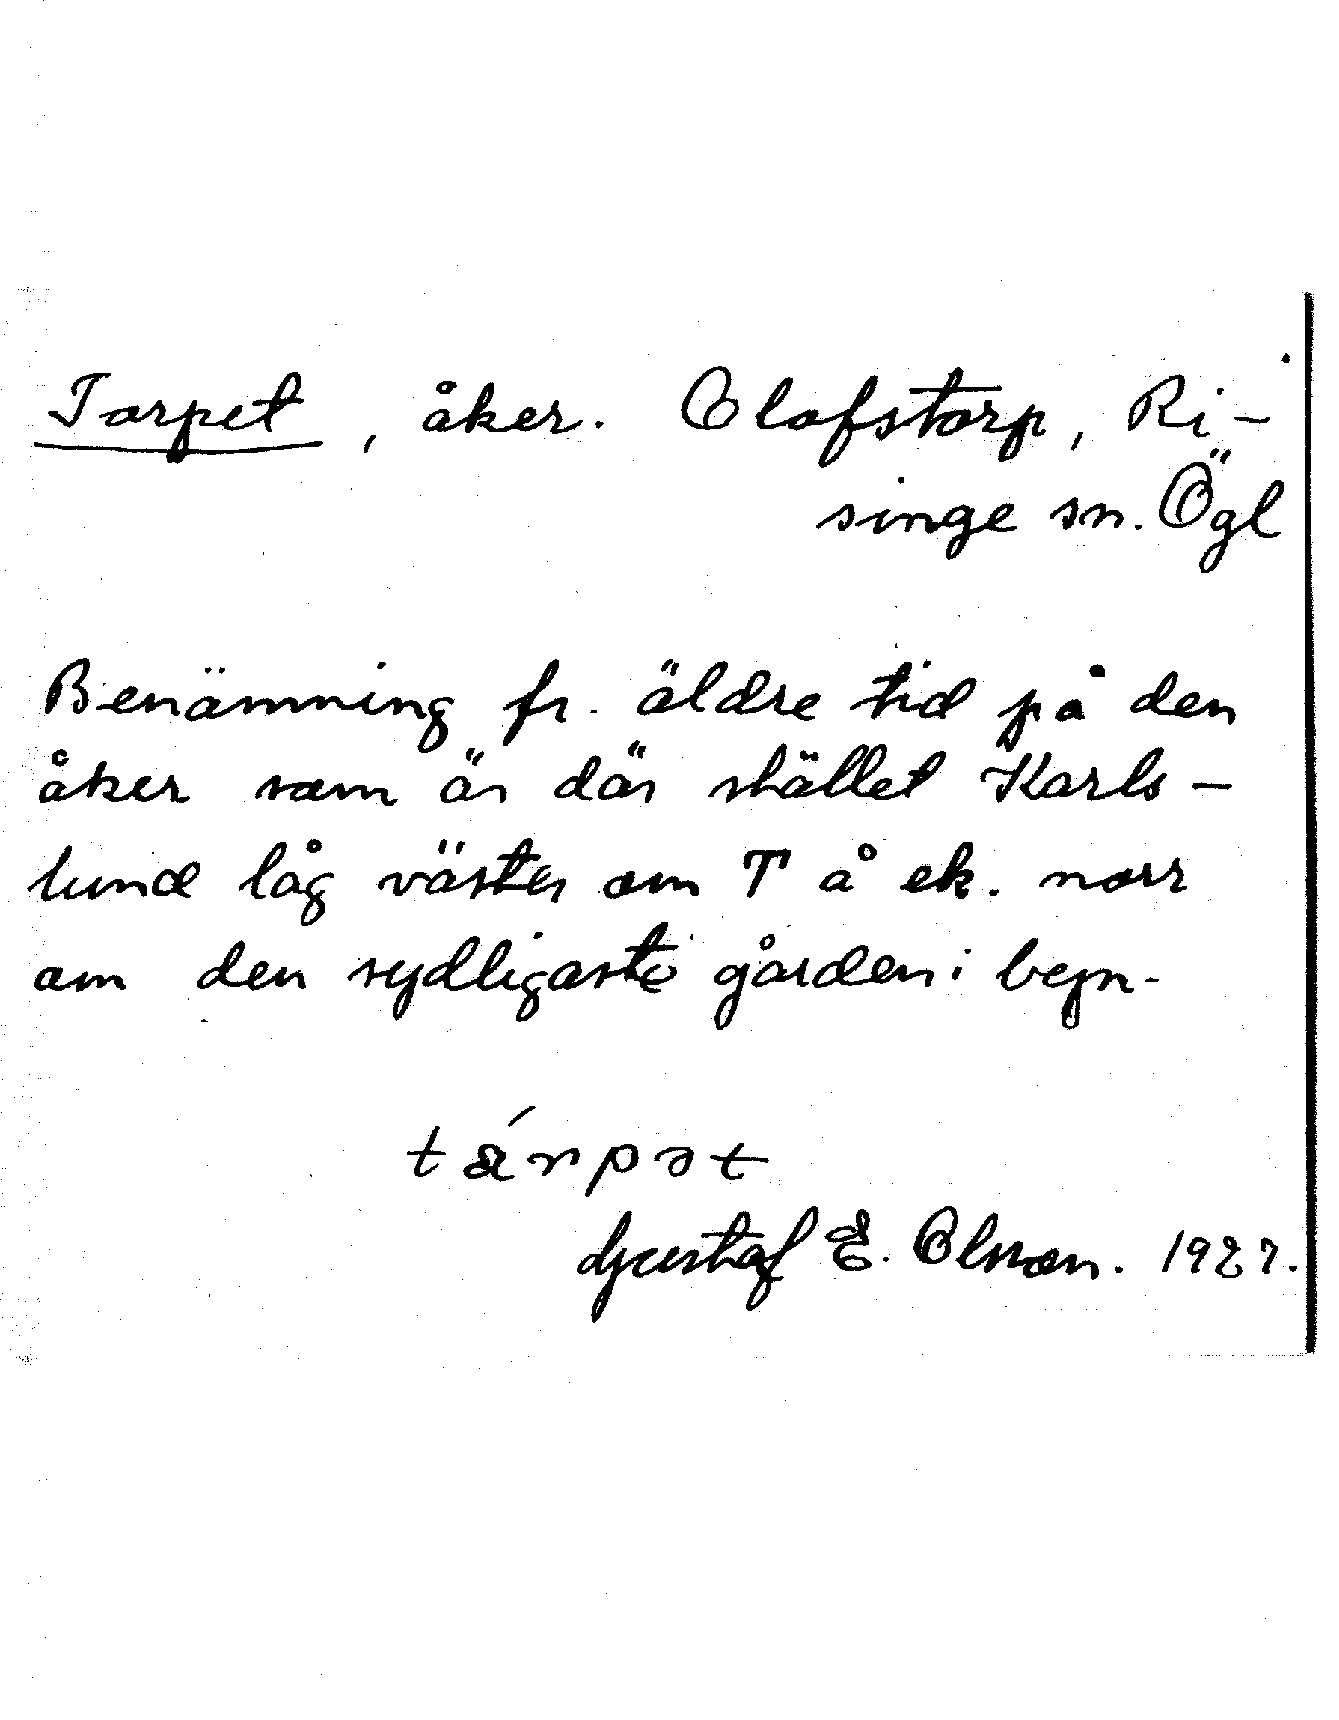 Torpet, åker. Olofstorp, Ri-
singe sn. Ögl
Benämning fr. äldre tid på den
åker som är där stället Karls-
lund låg väster om T å ek. norr
om den sydligaste gården i begn-
tårpət
Gustaf E. Olsson. 1927.